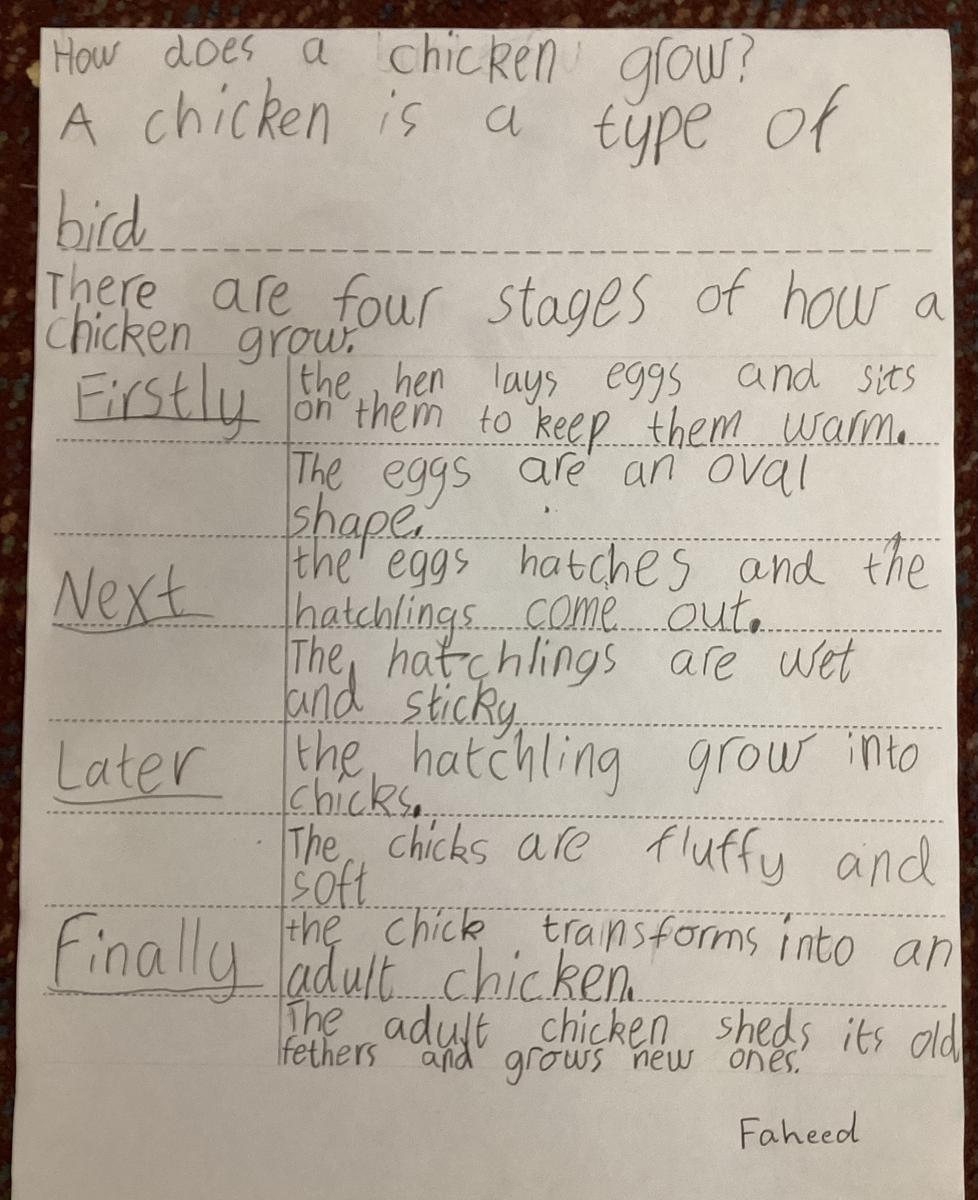 How does a chicken grow?
A chicken is a type of
bird
There are four stages of how a
chicken grow.
Firstly the hen lays eggs and sits
on them to keep them warm.
The eggs are an oval
shape.
Next the eggs hatches and the
hatchlings come out.
The hatchlings are wet
and sticky
Later the hatchling grow into
chicks.
The chicks are fluffy and
soft
Finally the chick trainsforms into an
adult chicken.
The adult chicken sheds its old
fethers and grows new ones.
Faheed